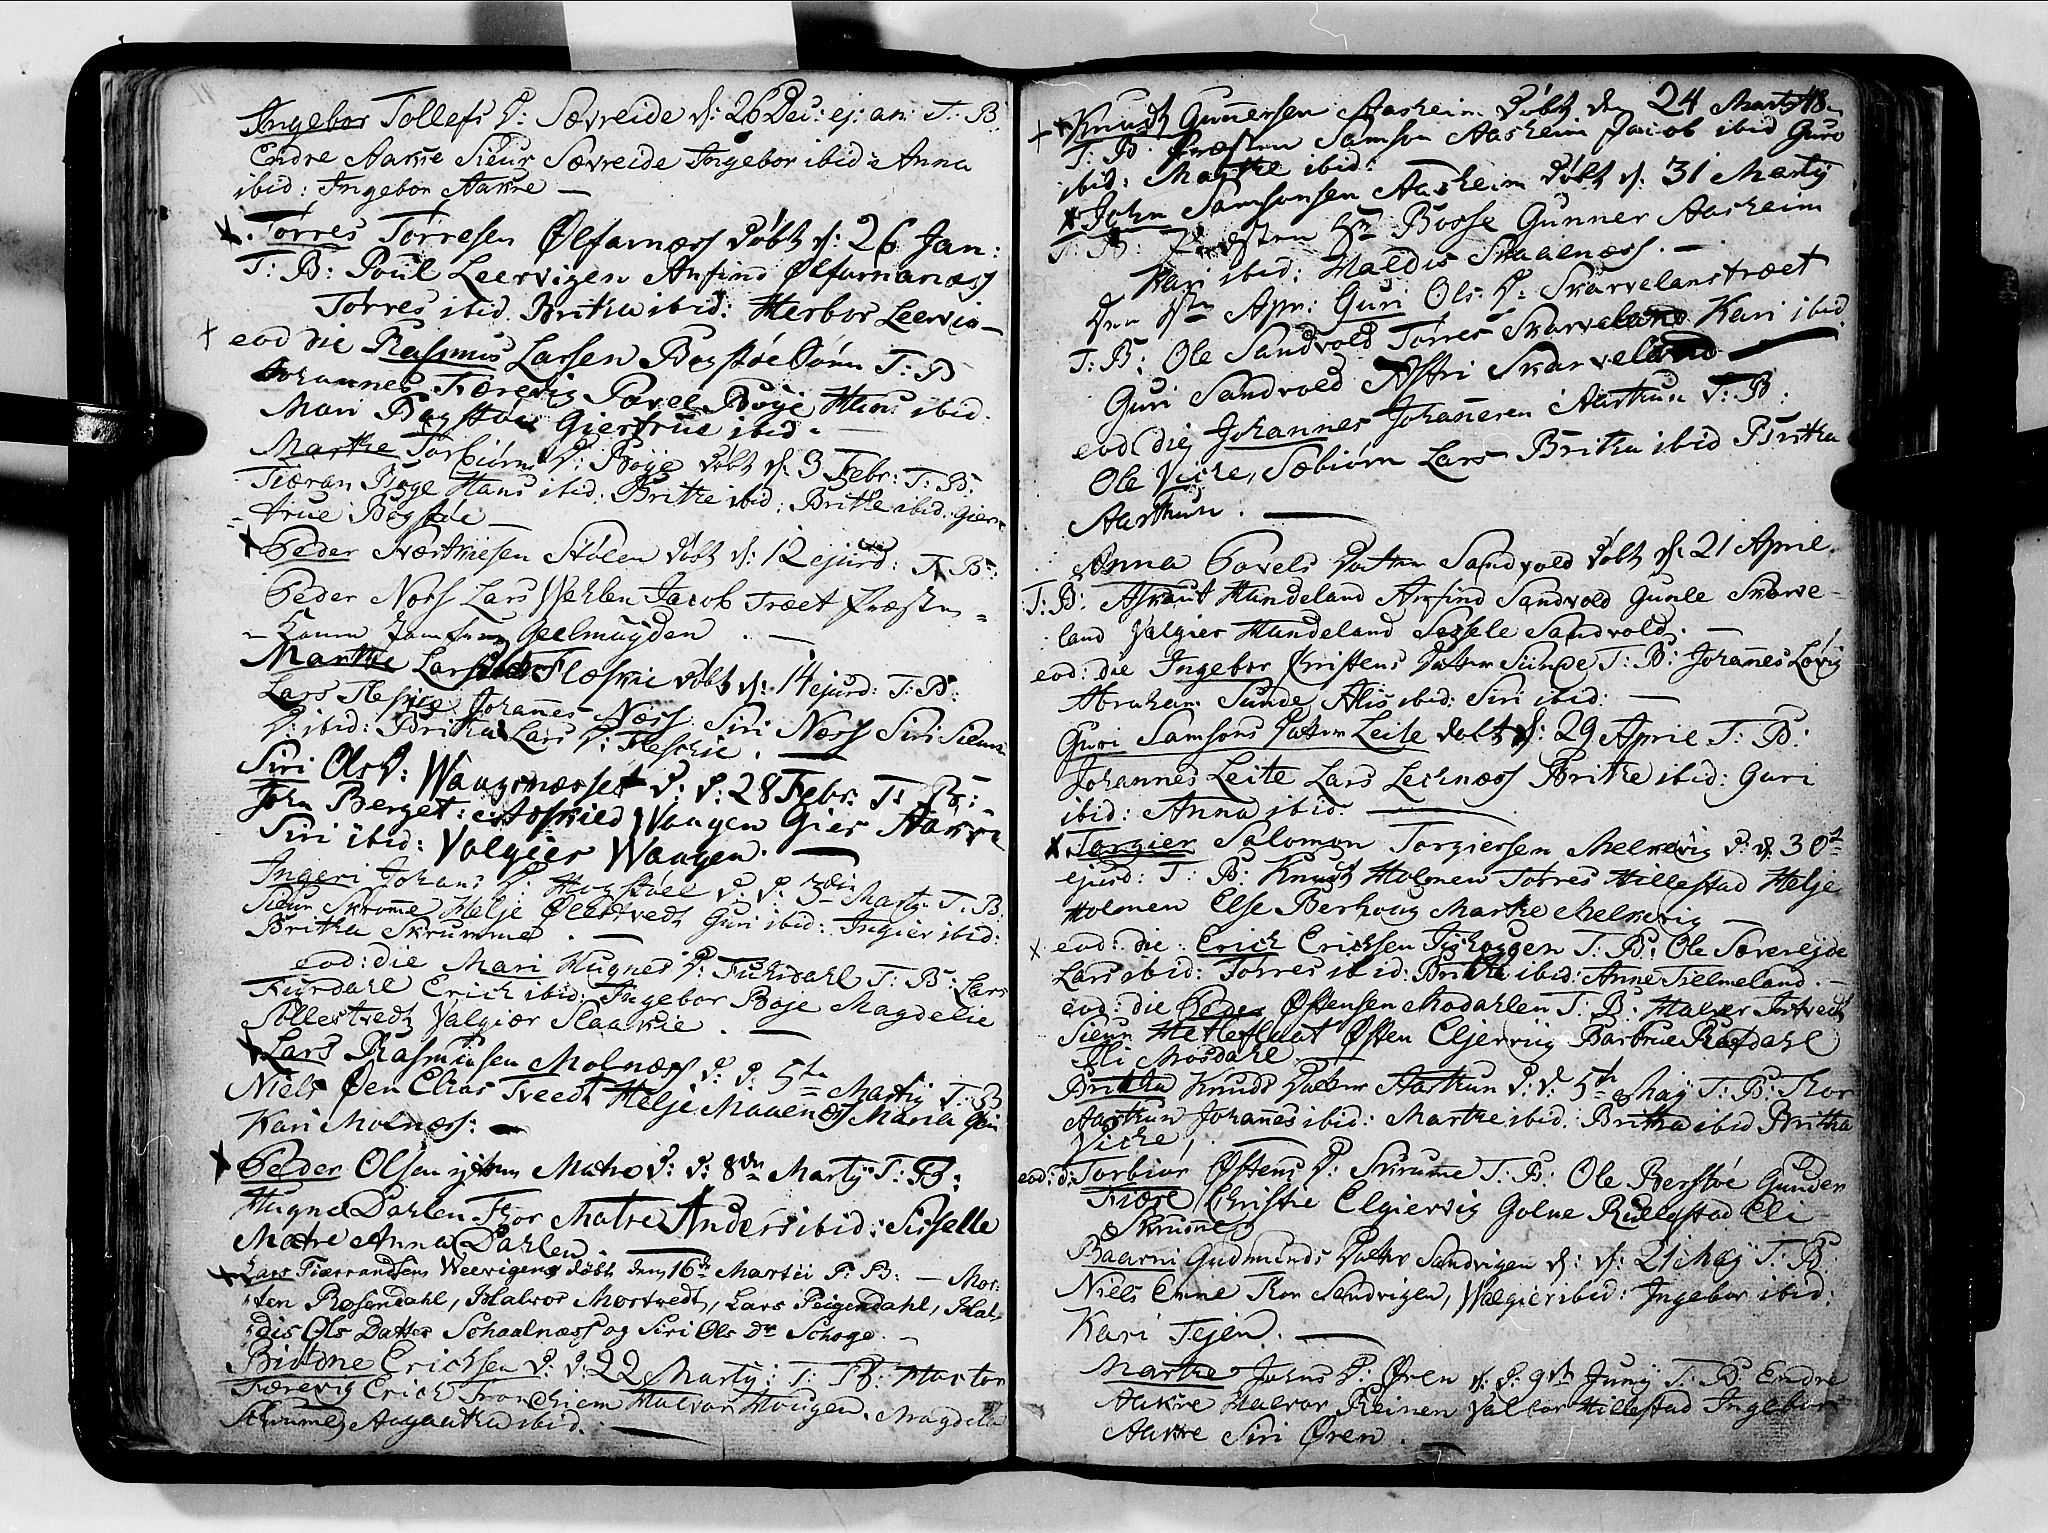 Ingebor Tollefs D: Sævreide d: 26 Dec: ej: an: T: B
Endre Aakre Siur Sævreide Ingebor ibid: Anna
ibid: Ingebor Aakre —
Tørres Tørresen Ølfarnæss døbt d: 26 Jan:
T: B: Poul Leervigen Anfind Ølfarnæss
Tørres ibid. Britha ibid: Herbor Leervig —
eod die Rasmus Larsen Bogstøe T: B
Johannes Færevig Povel Bøje Hans ibid.
Mari Bogstøe Giertrue ibid.
Marthe Torbiørns D: Bøye døbt d: 3 Febr: T: B:
Tiæran Bøge Hans ibid. Brithe ibid: Brithe ibid. Gier=
=true Bogstøe —
Peder Stølen døbt d: 12 ejusd: T: B:
Peder Næss Lars Wehlen Jacob Træet Præsten
Geelmuyden . —
Marthe Lars Flæskie døbt d: 14 ejusd: T: B:
Lars Fleskie Johannes Næss. Siri Næss Siri Siurs
D: ibid: Britha Lars D: Fleschie . —
Siri Ols D: Waagsnæsset D: d: 28 Febr. T: B:
John Berget: Waagen Gier Aakre
Siri ibid: Valgier Waagen. —
Ingeri Johans D: D. d. 3die Marty T. B.
Siur Skromme Helje Guri ibid: Ingier ibid:
Britha Skrumme . —
eod: die Mari Hugnes D: T: B: Lars
Erich ibid: Ingebor Boje Magdelie
Valgiær Slaakie . —
Lars Rasmussen Molnæss D: d: 5te Martij T: B
Niels Øen Elias Tvedt Helje Molnæs Maria Øen
Kari Molnæs: —
Peder Olsen Matre D: d: 8de Martij T: B:
Hugne Dahlen Thor Matre Anders ibid: Sisselle
Matre Anna Dahlen . —
Lars Fiærrandsen Weevigen døbt den 16de Martii T: B: — Mor=
=ten Rosendahl, Halvor Mortvedt, Lars Feigendahl, Hal=
=dis Ols Datter Schaalnæss og Siri Ols Dr Schoge. —
Erichsen D: d: 22 Martij: T: B: Morten
Færevig Erich Halvor Hougen. Magdela
ibid. —
Knudt Gunnersen Aasheim Døbt den 24 Marty 48
T: B: Præsten Samson Aasheim Jacob ibid Guro
ibid: Marthe ibid:
John Samsonsen Aasheim døbt d: 31 Martij
T: B: Hr Bosse Gunner Aasheim
Kari ibid: Haldis Skaalnæss. —
Den Apr: Guri Ols D: Skarvelanstræet
T: B: Ole Sandvold Tørres Skarveland Kari ibid.
Guri Sandvold Astri Skarveland —
eod die Johannes Johannesen Aarthun T: B:
Ole Viche, Sæbiørn Lars Britha ibid Britha
Aarthun . —
Anna Povels Datter Sandvold døbt d: 21 April.
T: B: Askaut Hundeland Arfind Sandvold Gunle Skarve=
land Valgier Hundeland Sissele Sandvold. —
eod: die Ingebor Christens Datter Sunde T: B: Johannes Løvig
Abraham Sunde Alis ibid: Siri ibid: —
Guri Samsons Datter Leite døbt d: 29 April T: B:
Johannes Leite Lars Lechnæss Brithe ibid: Guri
ibid: Anna ibid. —
Torgier Salomon Torgiersen Melkevig D: d: 30te
ejusd: T: B: Knudt Holmen Tørres Hillestad Helje
Holmen Else Berhoug Marthe Melkevig —
eod: die: Erich Erichsen T: B: Ole Sævereide
Lars ibid: Torres ibid: Britha ibid: Anne Tielmeland. —
eod: die Peder Østensen Modahlen T: B: Halvor Tortvedt
Siur Østen Eljervig Bartrue Rafdahl
Eli Mosdahl —
Britha Knuds Datter Aarthun D: d: 5te Maij T: B: Thor
Aarthun Johannes ibid: Marthe ibid. Britha ibid Britha
Viche . —
eod: d: Torbiør Østens D: Skrume T: B: Ole Berstøe Gunder
Fiære Christie Elgiervig Golne Rullestad Eli
Skrume
Baarni Gudmunds Datter Sandvigen d: d: 21 Maij T: B:
Niels Enne Thor Sandvigen, Walgier ibid: Ingebor ibid:
Kari Tejen. —
Marthe Johns D: Øren d: d: 9de Junij T: B: Endre
Aakre Halvor Reinen Valbor Hillestad Ingebor
Aakre Siri Øren . —